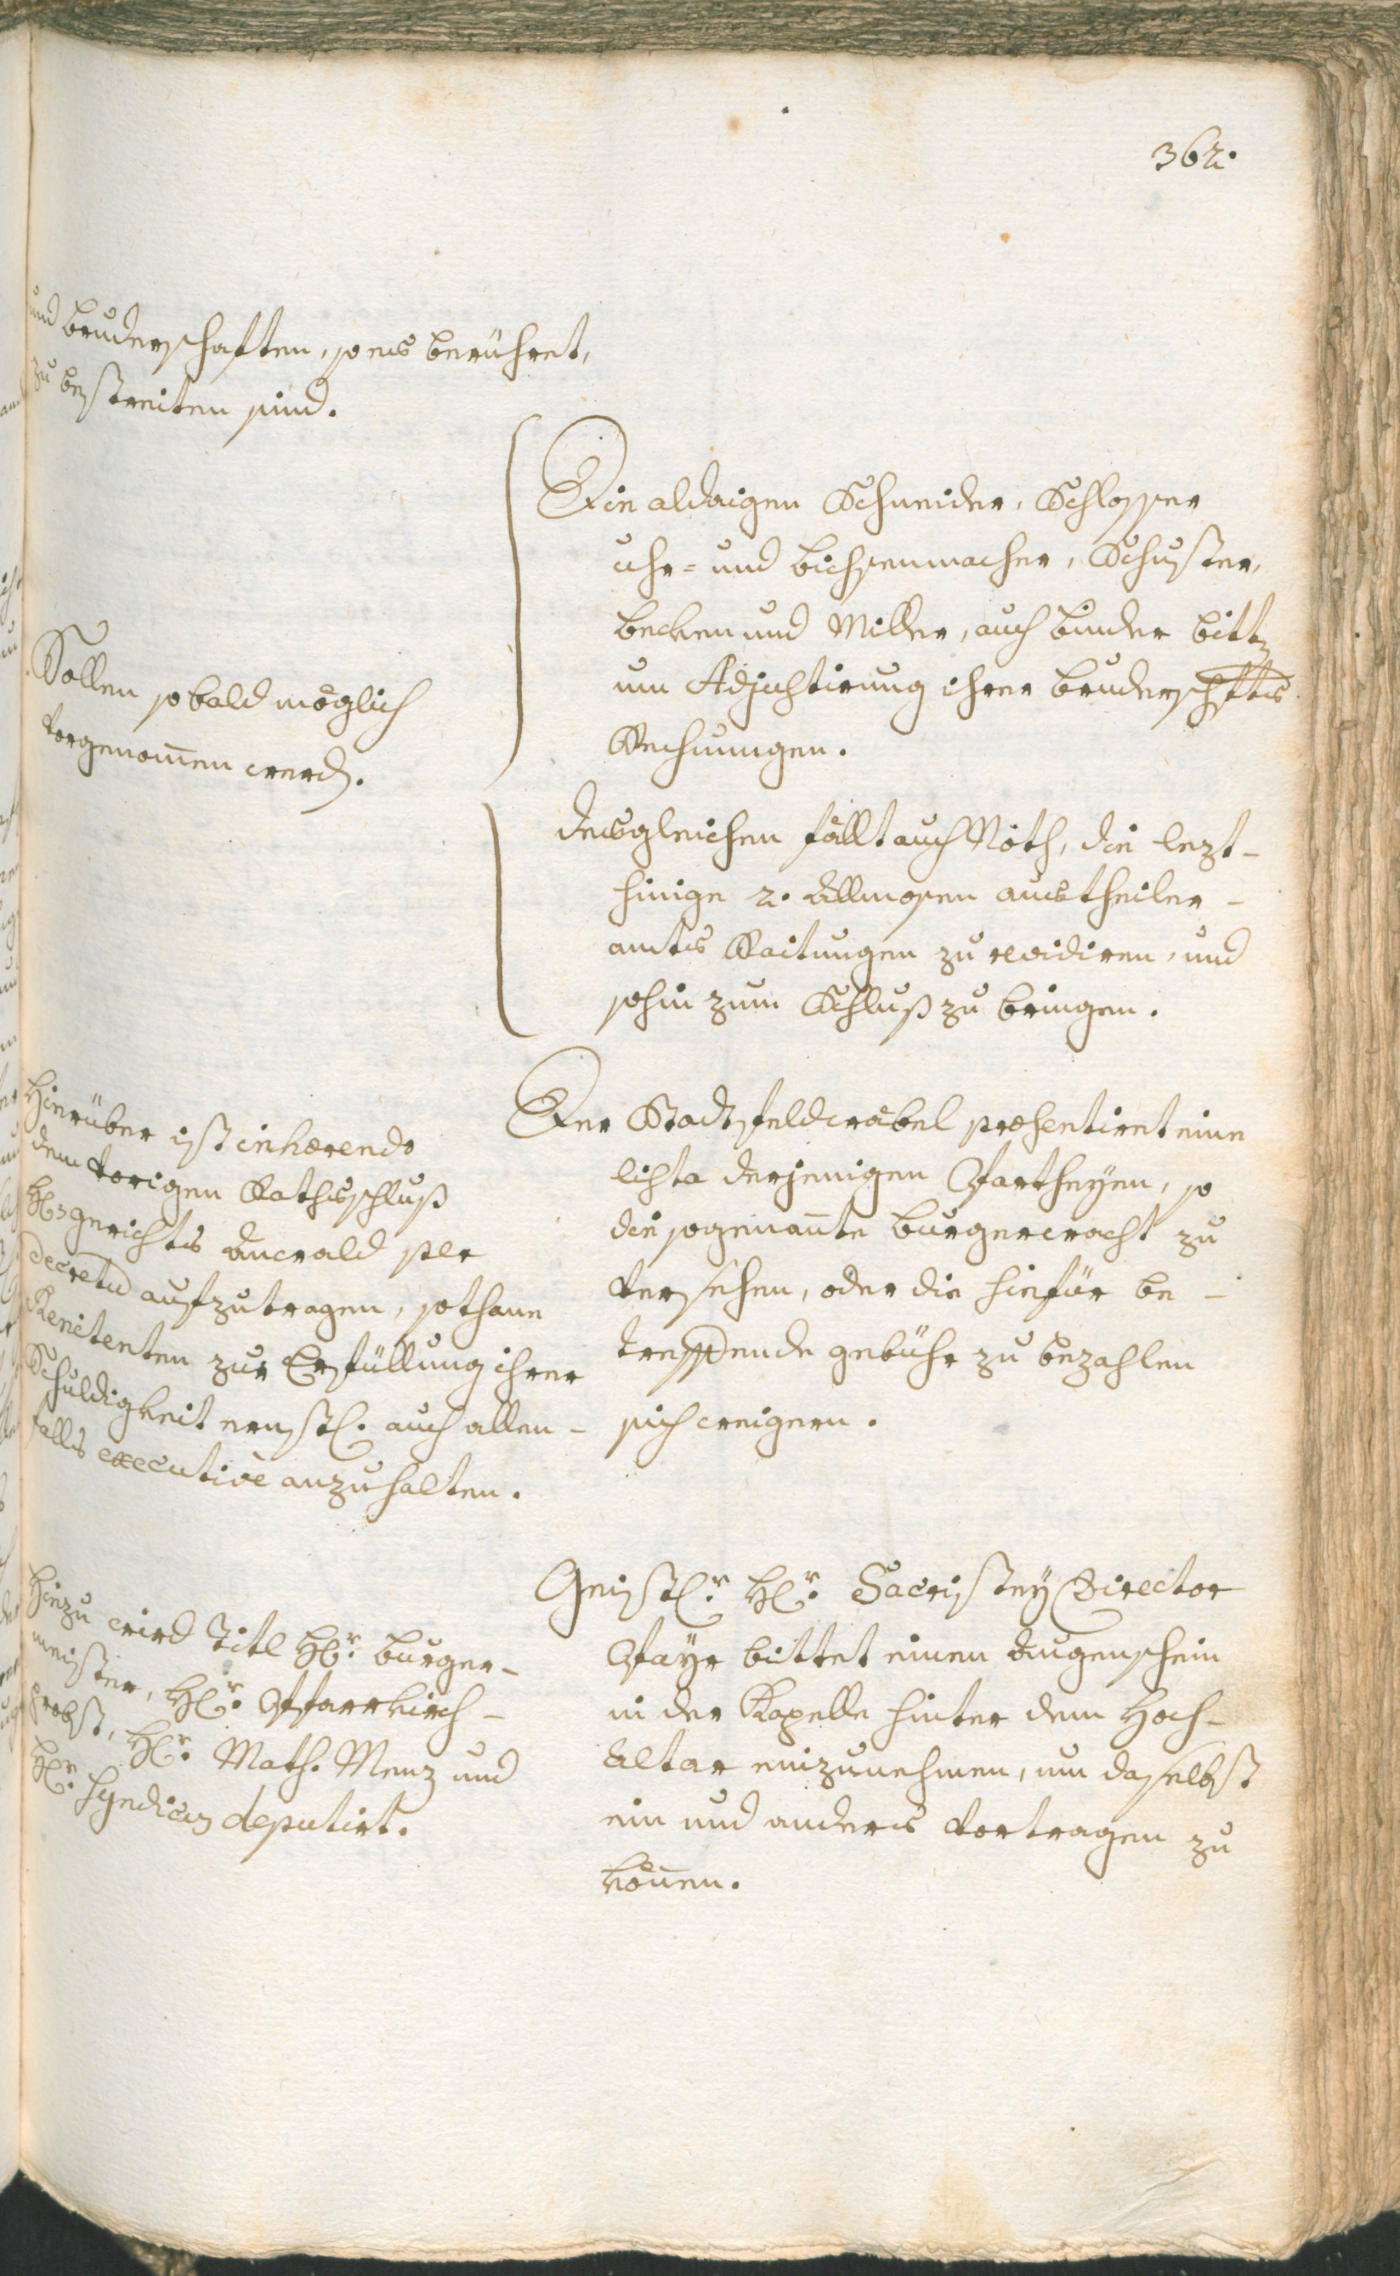 362.
und bruderschaften, so es berühret,
zu bestreiten sind.
Die aldaigen Schneider, Schlosser
uhr= und bichsenmacher, Schuster,
becken und Miller, auch binder bitt
um Adjustirung ihrer bruderschfts
Rechnungen.
Sollen so bald möglich
vorgenom̄en werd.
desgleichen fällt auch Noth, die lezt-
hinige 2. Allmosen austheiler-
amts Raitungen zu revidiren, und
sohin zum Schluß zu bringen.
Der Stadtsfeldwäbel præsentiret eine
lista derjenigen Partheyen, so
die sogenan̄te burgerwacht zu
versehen, oder die hiefür be-
treffende gebühr zu bezahlen
sich weigern.
Hierüber ist inhærendo
dem vorigen Rathsschluß
H. gerichts Anwald per
Decretu aufzutragen, sothane
Renitenten zur Erfüllung ihrer
Schuldigkeit ernstl. auch allen-
falls executive anzuhalten.
Geistlr. Hr. Sacristey Director
Payr bittet einen Augenschein
in der Kapelle hinter dem Hoch-
Altar einzunehmen, um daselbst
ein und anders vortragen zu
kön̄en.
Hiezu wird Titl Hr. burger-
meister, Hr. Pfarrkirch-
probst, Hr. Math. Menz und
Hr. Syndicus deputirt.